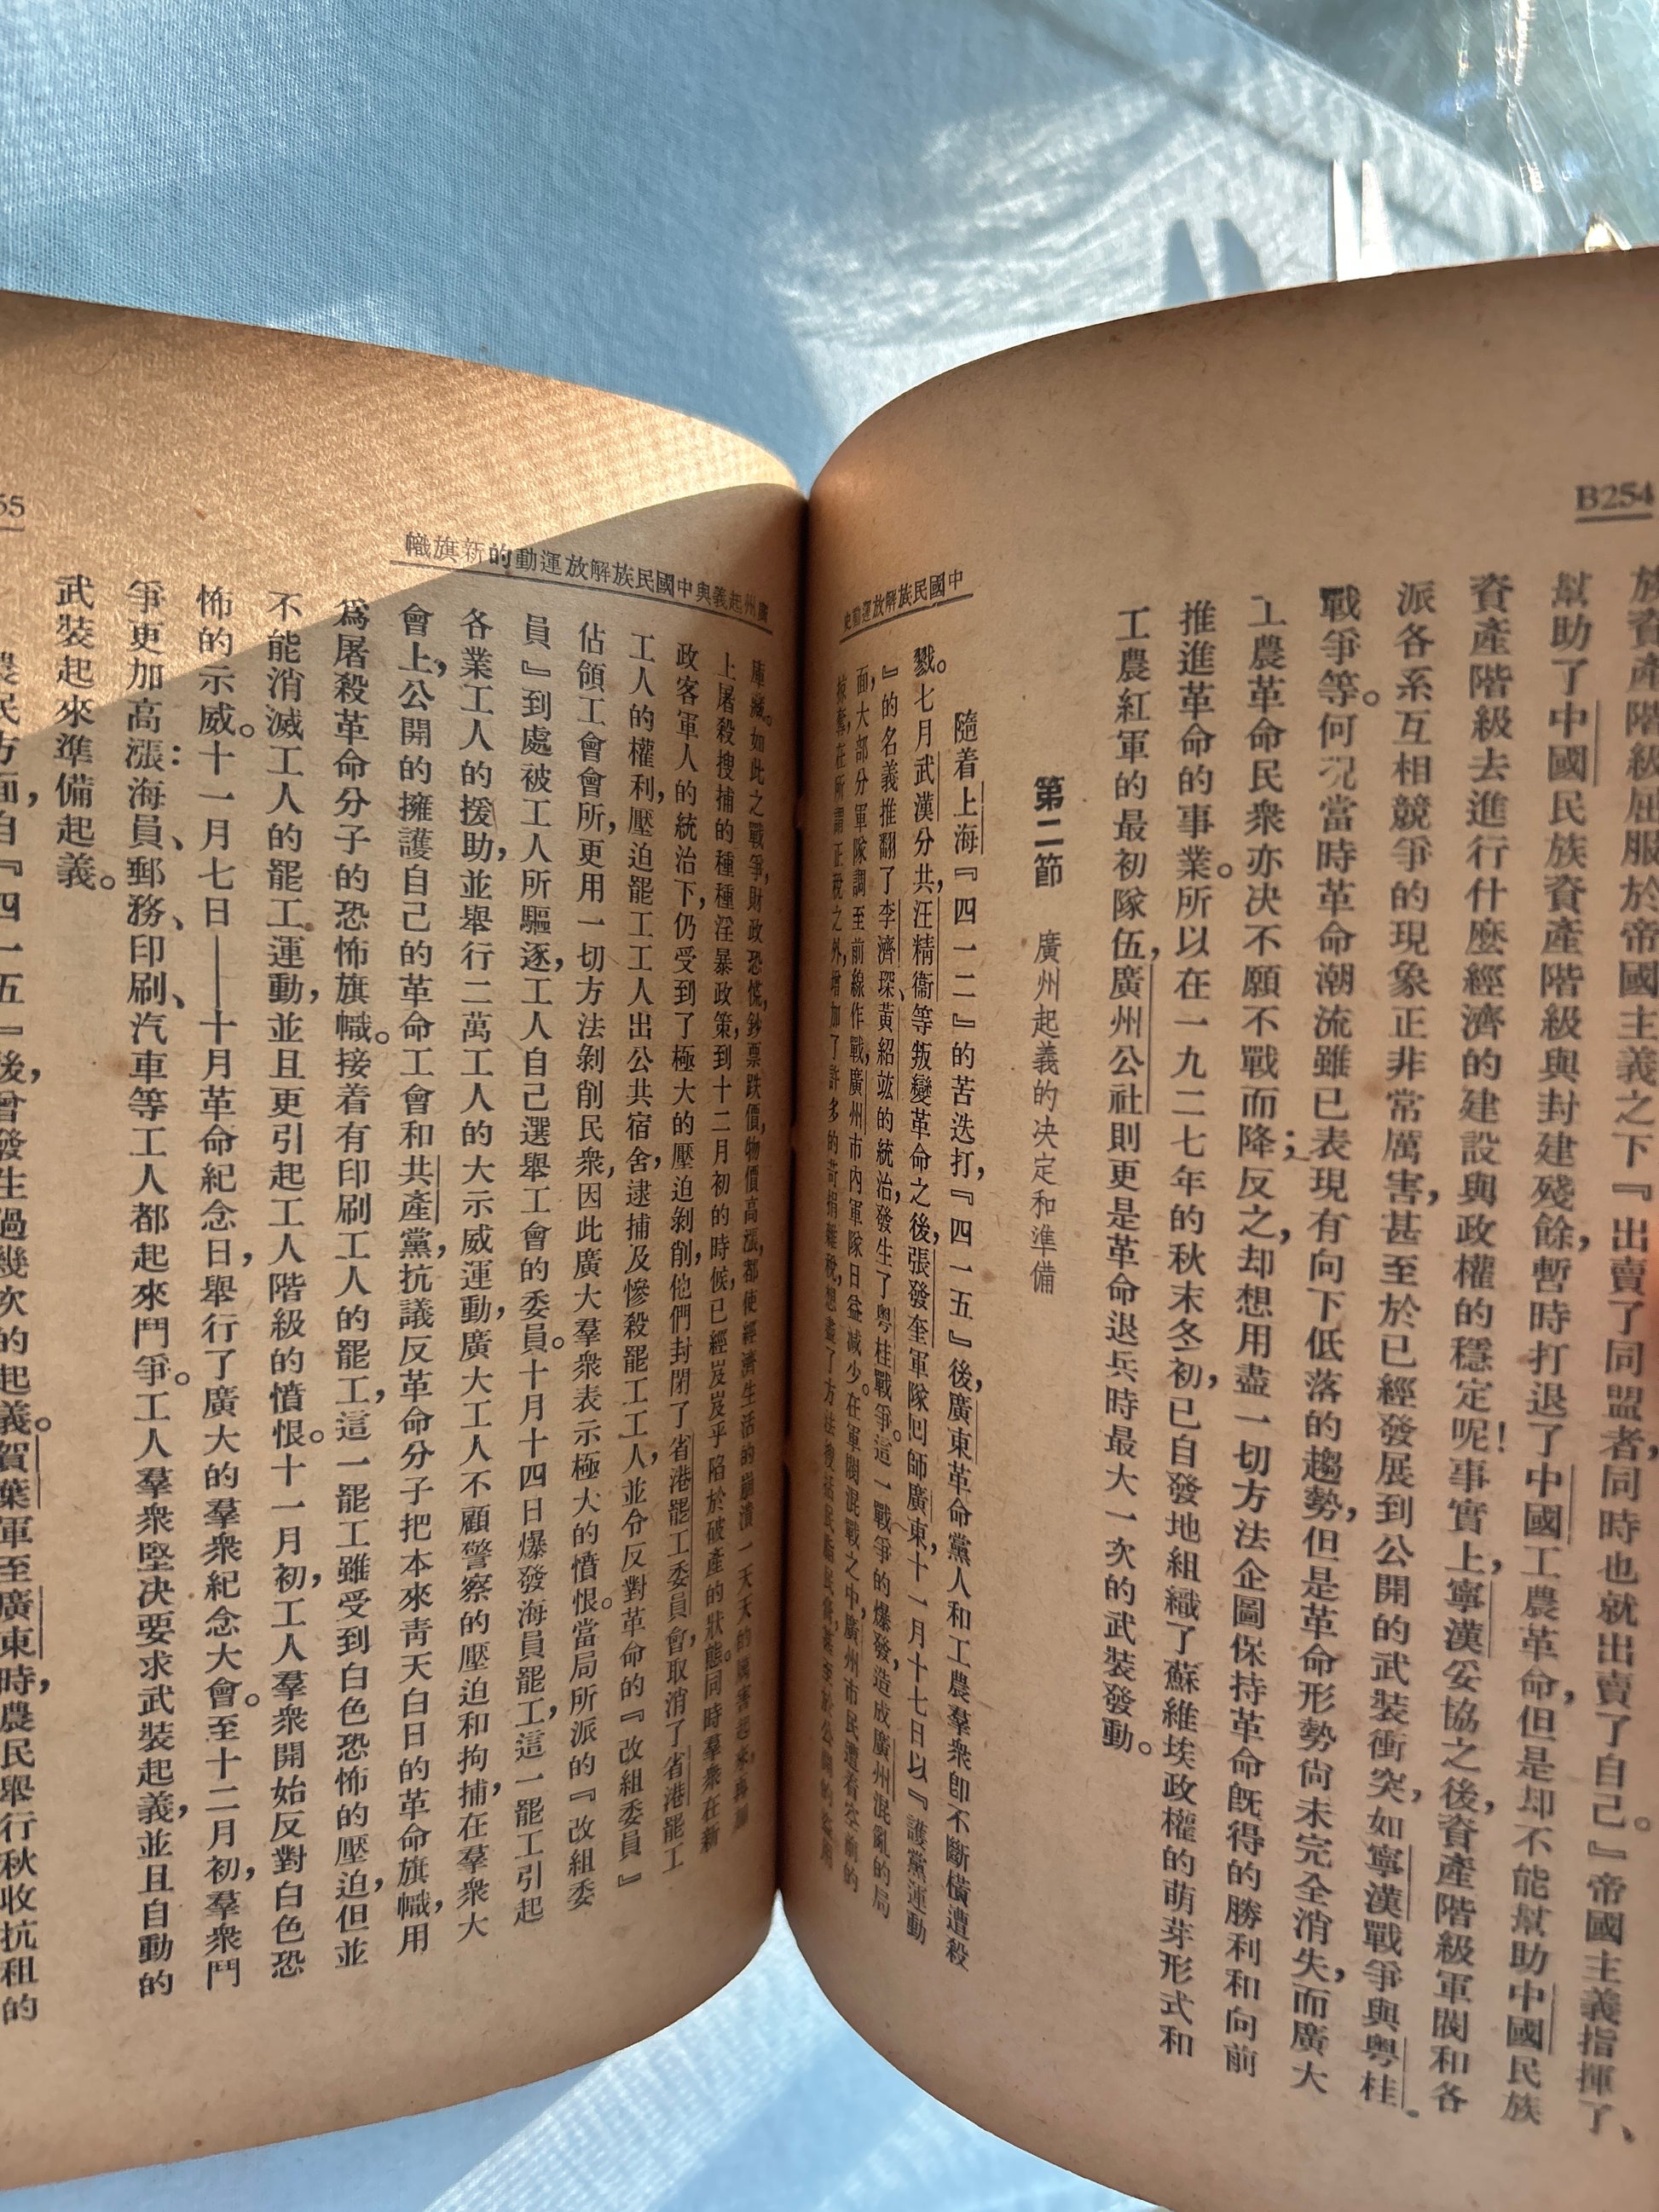 B254
族資產階級屈服於帝國主義之下『出賣了同盟者，同時也就出賣了自己。』帝國主義指揮了、
幫助了中國民族資產階級與封建殘餘，暫時打退了中國工農革命，但是却不能幫助中國民族
資產階級去進行什麼經濟的建設與政權的穩定呢！事實上，寧漢妥協之後，資產階級軍閥和各
派各系互相競爭的現象正非常厲害，甚至於已經發展到公開的武裝衝突，如寧漢戰爭與粵桂
戰爭等。何況當時革命潮流雖已表現有向下低落的趨勢，但是革命形勢尙未完全消失，而廣大
工農革命民衆亦决不願不戰而降；反之，却想用盡一切方法企圖保持革命旣得的勝利和向前
推進革命的事業。所以在一九二七年的秋末冬初，已自發地組織了蘇維埃政權的萌芽形式和
工農紅軍的最初隊伍，廣州公社則更是革命退兵時最大一次的武裝發動。
第二節　廣州起義的决定和準備
隨着上海『四一二』的苦迭打，『四一五』後，廣東革命黨人和工農羣衆卽不斷橫遭殺
戮。七月武漢分共，汪精衞等叛變革命之後，張發奎軍隊囘師廣東，十一月十七日以『護黨運動
』的名義推翻了李濟琛、黃紹竑的統治，發生了粵桂戰爭。這一戰爭的爆發，造成廣州混亂的局
面，大部分軍隊調至前線作戰，廣州市內軍隊日益減少。在軍閥混戰之中，廣州市民遭着空前的
掠奪，在所謂正稅之外，增加了許多的苛捐雜稅，想盡了方法搜括民脂民膏，甚至於公開的
中國民族解放運動史
廣州起義與中國民族解放運動的新旗幟
庫藏。如此之戰爭，財政恐慌，鈔票跌價，物價高漲，都使經濟生活的崩潰一天天的厲害起來，再加
上屠殺搜捕的種種淫暴政策，到十二月初的時候，已經岌岌乎陷於破產的狀態。同時羣衆在新
政客軍人的統治下，仍受到了極大的壓迫剝削，他們封閉了省港罷工委員會，取消了省港罷工
工人的權利，壓迫罷工工人出公共宿舍，逮捕及慘殺罷工工人，並令反對革命的『改組委員』
佔領工會會所，更用一切方法剝削民衆，因此廣大羣衆表示極大的憤恨。當局所派的『改組委
員』到處被工人所驅逐，工人自己選舉工會的委員。十月十四日爆發海員罷工，這一罷工引起
各業工人的援助，並舉行二萬工人的大示威運動，廣大工人不顧警察的壓迫和拘捕，在羣衆大
會上，公開的擁護自己的革命工會和共產黨，抗議反革命分子把本來靑天白日的革命旗幟，用
爲屠殺革命分子的恐怖旗幟。接着有印刷工人的罷工，這一罷工雖受到白色恐怖的壓迫，但並
不能消滅工人的罷工運動，並且更引起工人階級的憤恨。十一月初，工人羣衆開始反對白色恐
怖的示威。十一月七日——十月革命紀念日，舉行了廣大的羣衆紀念大會。至十二月初，羣衆鬥
爭更加高漲：海員、郵務、印刷、汽車等工人都起來鬥爭。工人羣衆堅决要求武裝起義，並且自動的
武裝起來準備起義。
農民方面，自『四一五』後，曾發生過幾次的起義。賀葉軍至廣東時，農民舉行秋收抗租的